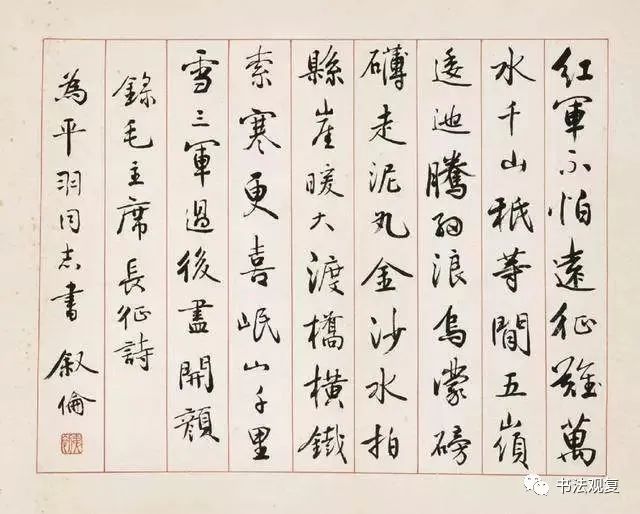 红軍不怕遠征難萬
水千山秖等閒五嶺
逶迤騰細浪烏濛磅
礴走泥丸金沙水拍
縣崖暖大渡橋橫鐵
索寒更喜岷山千里
雪三軍過後盡開顏
錄毛主席長征詩
為平羽同志書 叙倫
书法观复